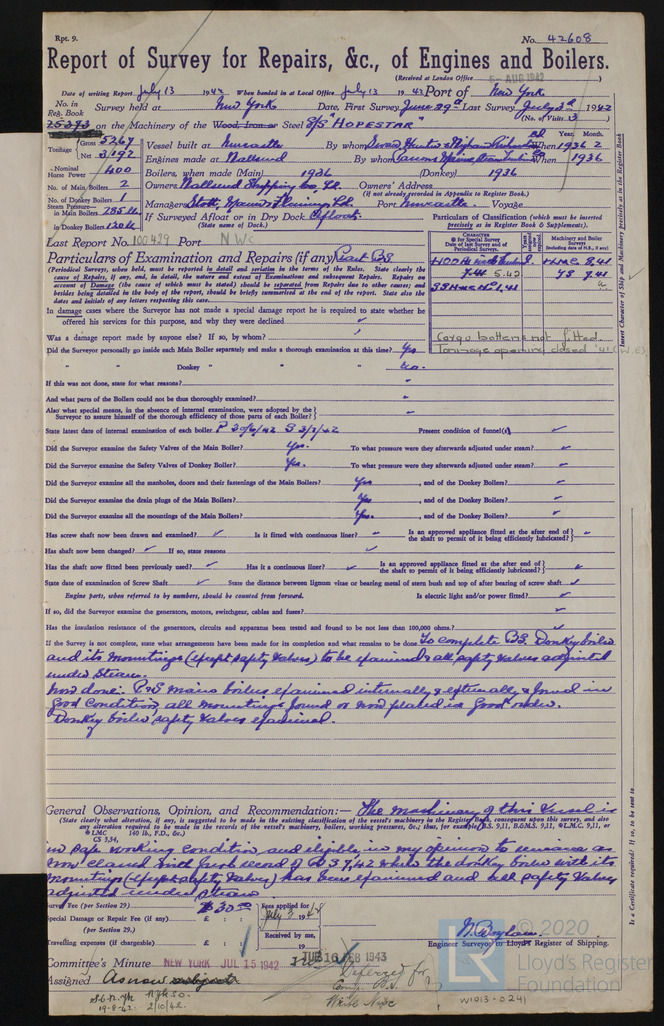 Rpt. 9.
No. 42608
Report of Survey for Repairs, &c., of Engines and Boilers.
(Received at London Office 5- AUG 1942)
Date of writing Report July 13 1942 When handed in at Local Office July 13 1942 Port of New York
No. in Reg. Book
Survey held at New York Date, First Survey June 29th Last Survey July 3rd 1942
(No. of Visits 3)
25393 on the Machinery of the Wood, Iron or Steel S/S "HOPESTAR"
Tonnage Gross 5267 Net 3192
Vessel built at Newcastle By whom Swan Hunter & Wigham Richardson Ld When 1936 2
Year. Month.
Engines made at Wallsend By whom When 1936
Nominal Horse Power 400
Boilers, when made (Main) 1936 (Donkey) 1936
No. of Main Boilers 2
Owners Wallsend Shipping Co. Ld. Owners' Address
(if not already recorded in Appendix to Register Book.)
No. of Donkey Boilers 1
Managers Stott, Mann & Fleming Ld. Port Newcastle. Voyage
Steam Pressure in Main Boilers 225 lb
in Donkey Boilers 120 lb
If Surveyed Afloat or in Dry Dock Afloat
(State name of Dock.)
Particulars of Classification (which must be inserted precisely as in Register Book & Supplements).
Last Report No. 100429 Port NWC
Particulars of Examination and Repairs (if any) Part BS
(Periodical Surveys, when held, must be reported in detail and seriatim in the terms of the Rules. State clearly the cause of Repairs, if any, and, in detail, the nature and extent of Examinations and subsequent Repairs. Repairs on account of Damage (the cause of which must be stated) should be separated from Repairs due to other causes; and besides being detailed in the body of the report, should be briefly summarised at the end of the report. State also the dates and initials of any letters respecting this case.
CHARACTER
for Special Survey
Date of last Survey and of Periodical Surveys.
Machinery and Boiler Surveys
(including date of N.B., if any)
+LMC 8,41
7.41 5.42
BS 7.41
Cargo battens not fitted.
Tonnage opening closed '41 (W.E.)
Insert Character of Ship and Machinery precisely as in the Register Book
In damage cases where the Surveyor has not made a special damage report he is required to state whether he offered his services for this purpose, and why they were declined
Was a damage report made by anyone else? If so, by whom?
Did the Surveyor personally go inside each Main Boiler separately and make a thorough examination at this time? Yes
" " Donkey " " " no.
If this was not done, state for what reasons?
And what parts of the Boilers could not be thus thoroughly examined?
Also what special means, in the absence of internal examination, were adopted by the Surveyor to assure himself of the thorough efficiency of those parts of each Boiler?
State latest date of internal examination of each boiler P 30/6/42 S 3/7/42 Present condition of funnel(s)
Did the Surveyor examine the Safety Valves of the Main Boiler? Yes. To what pressure were they afterwards adjusted under steam?
Did the Surveyor examine the Safety Valves of Donkey Boiler? Yes. To what pressure were they afterwards adjusted under steam?
Did the Surveyor examine all the manholes, doors and their fastenings of the Main Boilers? Yes , and of the Donkey Boilers?
Did the Surveyor examine the drain plugs of the Main Boilers? Yes , and of the Donkey Boilers?
Did the Surveyor examine all the mountings of the Main Boilers? Yes. , and of the Donkey Boilers?
Has screw shaft now been drawn and examined? Is it fitted with continuous liner? Is an approved appliance fitted at the after end of the shaft to permit of it being efficiently lubricated?
Has shaft now been changed? If so, state reasons
Has the shaft now fitted been previously used? Has it a continuous liner? Is an approved appliance fitted at the after end of the shaft to permit of it being efficiently lubricated?
State date of examination of Screw Shaft State the distance between lignum vitæ or bearing metal of stern bush and top of after bearing of screw shaft
Engine parts, when referred to by numbers, should be counted from forward. Is electric light and/or power fitted?
If so, did the Surveyor examine the generators, motors, switchgear, cables and fuses?
Has the insulation resistance of the generators, circuits and apparatus been tested and found to be not less than 100,000 ohms?
If the Survey is not complete, state what arrangements have been made for its completion and what remains to be done To complete BS. Donkey boiler
and its mountings (except safety valves) to be examined & all safety valves adjusted
under steam.
Now done. P & S mains boilers examined internally & externally & found in
good condition, all mountings found or now placed in good order.
Donkey boiler safety valves examined.
General Observations, Opinion, and Recommendation:— The machinery of this vessel is
(State clearly what alteration, if any, is suggested to be made in the existing classification of the vessel's machinery in the Register Book, consequent upon this survey, and also any alteration required to be made in the records of the vessel's machinery, boilers, working pressures, &c., thus, for example, B.S. 9,11, B.&M.S. 9,11, L.M.C. 9,11, or LMC 140 lb., F.D., &c.)
CS 3,34,
in safe working condition and eligible in my opinion to remain as
now classed with fresh record of BS 7,42 when the donkey boiler with its
mountings (except safety valves) has been examined and all safety valves
adjusted under steam
Survey Fee (per Section 29) $30.00 Fees applied for July 3 1942
Special Damage or Repair Fee (if any) (per Section 29.) £ : :
Received by me, 19
Travelling expenses (if chargeable) £ : :
Engineer Surveyor to Lloyd's Register of Shipping.
Committee's Minute NEW YORK JUL 15 1942 TUE 16 FEB 1943
Assigned As now
Deferred for
Is a Certificate required? If so, to be sent to
© 2020
Lloyd's Register
Foundation
W1013-0241